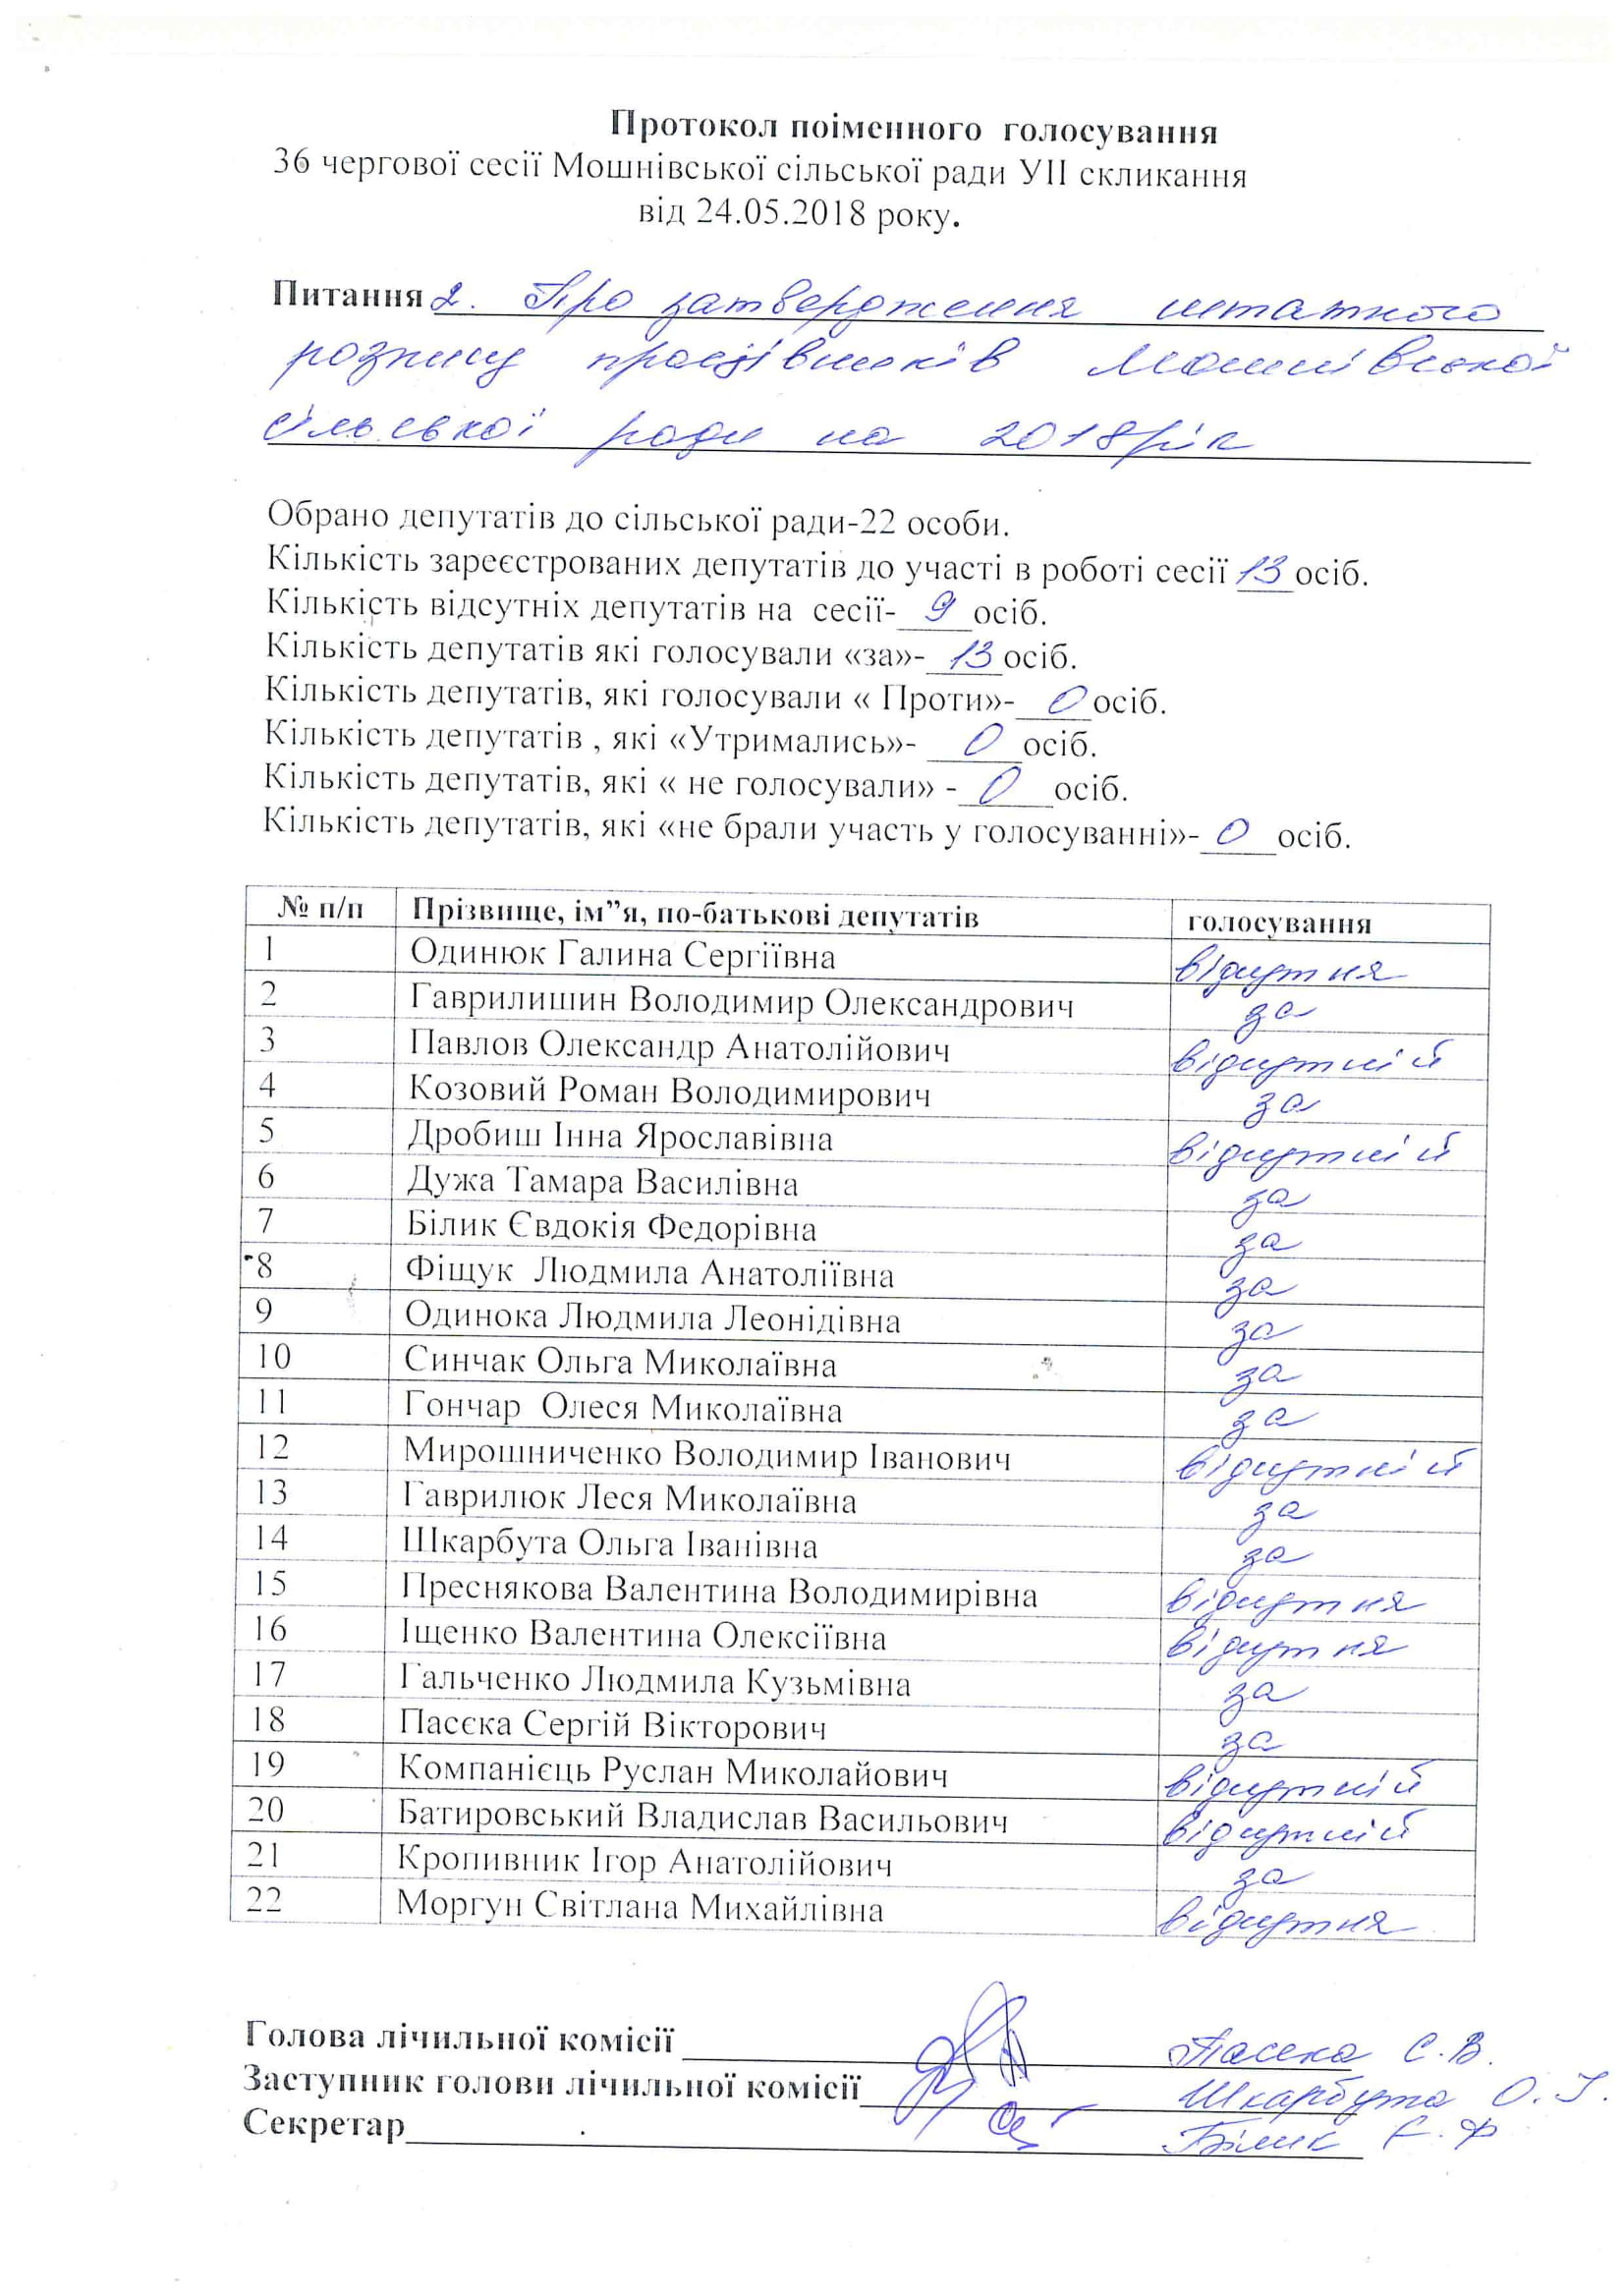 Протокол поіменного голосування
36 чергової сесії Мошнівської сільської ради УІІ скликання
від 24.05.2018 року.
Питання 2. Про затвердження штатного
розпису працівників Мошнівської
сільської ради на 2018 рік
Обрано депутатів до сільської ради-22 особи.
Кількість зареєстрованих депутатів до участі в роботі сесії 13 осіб.
Кількість відсутніх депутатів на сесії- 9 осіб.
Кількість депутатів які голосували «за»- 13 осіб.
Кількість депутатів, які голосували « Проти»- 0 осіб.
Кількість депутатів , які «Утримались»- 0 осіб.
Кількість депутатів, які « не голосували» - 0 осіб.
Кількість депутатів, які «не брали участь у голосуванні»- 0 осіб.
№ п/п Прізвище, ім”я, по-батькові депутатів голосування
1 Одинюк Галина Сергіївна відсутня
2 Гаврилишин Володимир Олександрович за
3 Павлов Олександр Анатолійович відсутній
4 Козовий Роман Володимирович за
5 Дробиш Інна Ярославівна відсутній
6 Дужа Тамара Василівна за
7 Білик Євдокія Федорівна за
8 Фіщук Людмила Анатоліївна за
9 Одинока Людмила Леонідівна за
10 Синчак Ольга Миколаївна за
11 Гончар Олеся Миколаївна за
12 Мирошниченко Володимир Іванович відсутній
13 Гаврилюк Леся Миколаївна за
14 Шкарбута Ольга Іванівна за
15 Преснякова Валентина Володимирівна відсутня
16 Іщенко Валентина Олексіївна відсутня
17 Гальченко Людмила Кузьмівна за
18 Пасєка Сергій Вікторович за
19 Компанієць Руслан Миколайович відсутній
20 Батировський Владислав Васильович відсутній
21 Кропивник Ігор Анатолійович за
22 Моргун Світлана Михайлівна відсутня
Голова лічильної комісії Пасєка С.В.
Заступник голови лічильної комісії Шкарбута О.І.
Секретар Білик Є.Ф